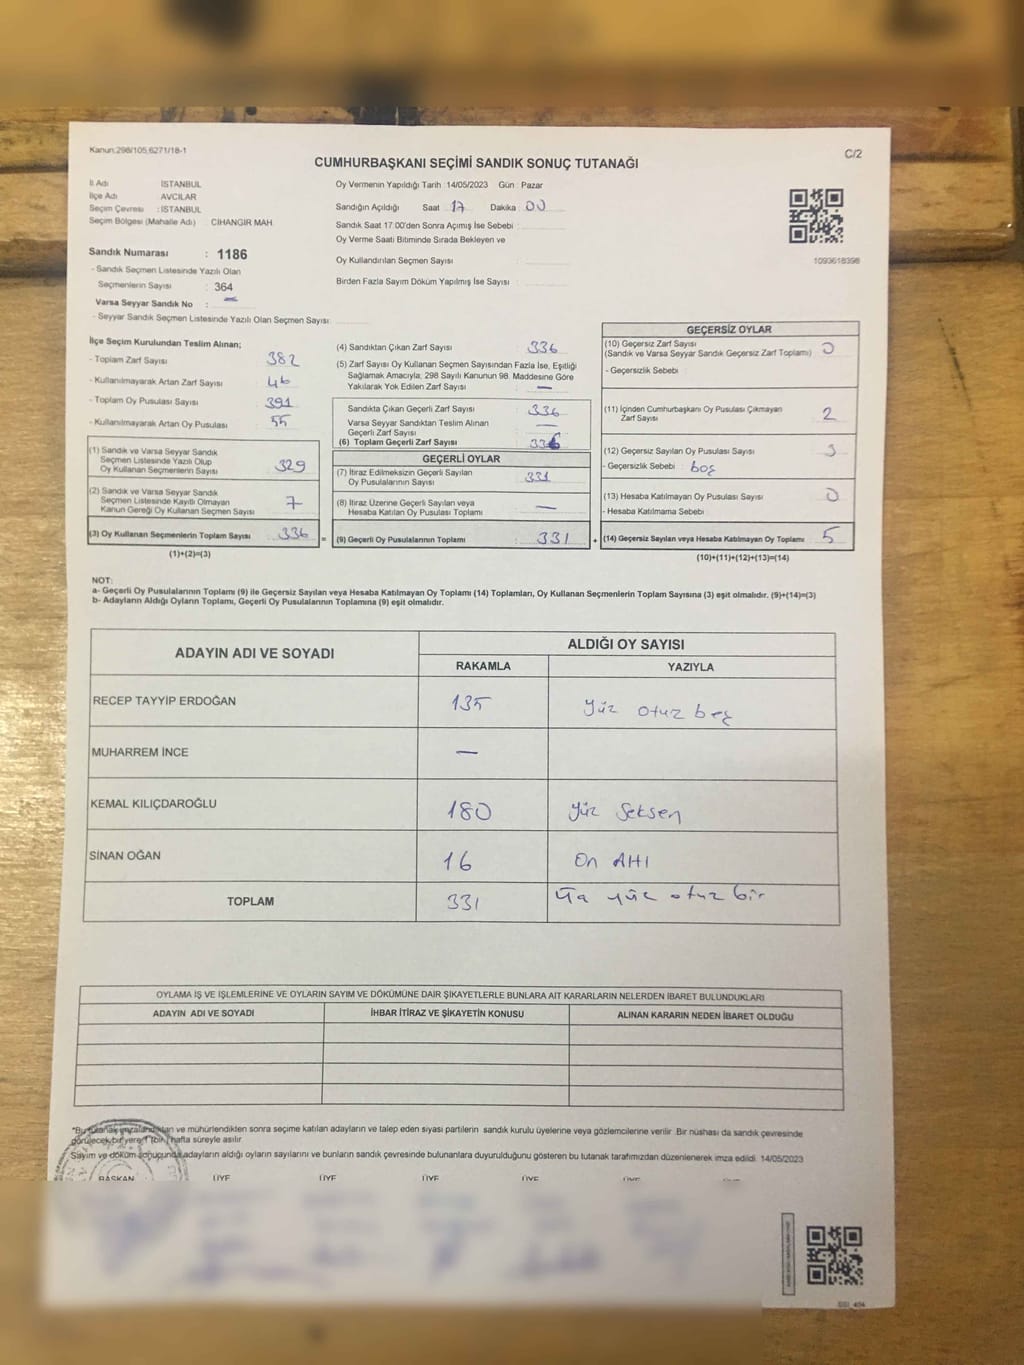 Kanun:298/105,6271/18-1
C/2
CUMHURBAŞKANI SEÇİMİ SANDIK SONUÇ TUTANAĞI
İl Adı İSTANBUL
İlçe Adı AVCILAR
Seçim Çevresi : İSTANBUL
Seçim Bölgesi (Mahalle Adı) : CİHANGİR MAH.
Sandık Numarası : 1186
- Sandık Seçmen Listesinde Yazılı Olan
Seçmenlerin Sayısı : 364
Varsa Seyyar Sandık No : —
- Seyyar Sandık Seçmen Listesinde Yazılı Olan Seçmen Sayısı:
Oy Vermenin Yapıldığı Tarih :14/05/2023 Gün : Pazar
Sandığın Açıldığı Saat 17 Dakika 00
Sandık Saat 17:00'den Sonra Açılmış İse Sebebi :
Oy Verme Saati Bitiminde Sırada Bekleyen ve
Oy Kullandırılan Seçmen Sayısı :
Birden Fazla Sayım Döküm Yapılmış İse Sayısı :
1093618398
İlçe Seçim Kurulundan Teslim Alınan;
- Toplam Zarf Sayısı : 382
- Kullanılmayarak Artan Zarf Sayısı : 46
- Toplam Oy Pusulası Sayısı : 391
- Kullanılmayarak Artan Oy Pusulası : 55
(1) Sandık ve Varsa Seyyar Sandık
Seçmen Listesinde Yazılı Olup
Oy Kullanan Seçmenlerin Sayısı : 329
(2) Sandık ve Varsa Seyyar Sandık
Seçmen Listesinde Kayıtlı Olmayan
Kanun Gereği Oy Kullanan Seçmen Sayısı : 7
(3) Oy Kullanan Seçmenlerin Toplam Sayısı : 336 =
(1)+(2)=(3)
(4) Sandıktan Çıkan Zarf Sayısı : 336
(5) Zarf Sayısı Oy Kullanan Seçmen Sayısından Fazla İse, Eşitliği
Sağlamak Amacıyla, 298 Sayılı Kanunun 98. Maddesine Göre
Yakılarak Yok Edilen Zarf Sayısı : —
Sandıkta Çıkan Geçerli Zarf Sayısı : 336
Varsa Seyyar Sandıktan Teslim Alınan
Geçerli Zarf Sayısı : —
(6) Toplam Geçerli Zarf Sayısı : 336
GEÇERLİ OYLAR
(7) İtiraz Edilmeksizin Geçerli Sayılan
Oy Pusulalarının Sayısı : 331
(8) İtiraz Üzerine Geçerli Sayılan veya
Hesaba Katılan Oy Pusulası Toplamı : —
(9) Geçerli Oy Pusulalarının Toplamı : 331 +
GEÇERSİZ OYLAR
(10) Geçersiz Zarf Sayısı
(Sandık ve Varsa Seyyar Sandık Geçersiz Zarf Toplamı) : 0
- Geçersizlik Sebebi :
(11) İçinden Cumhurbaşkanı Oy Pusulası Çıkmayan
Zarf Sayısı : 2
(12) Geçersiz Sayılan Oy Pusulası Sayısı : 3
- Geçersizlik Sebebi : boş
(13) Hesaba Katılmayan Oy Pusulası Sayısı : 0
- Hesaba Katılmama Sebebi :
(14) Geçersiz Sayılan veya Hesaba Katılmayan Oy Toplamı : 5
(10)+(11)+(12)+(13)=(14)
NOT:
a- Geçerli Oy Pusulalarının Toplamı (9) ile Geçersiz Sayılan veya Hesaba Katılmayan Oy Toplamı (14) Toplamları, Oy Kullanan Seçmenlerin Toplam Sayısına (3) eşit olmalıdır. (9)+(14)=(3)
b- Adayların Aldığı Oyların Toplamı, Geçerli Oy Pusulalarının Toplamına (9) eşit olmalıdır.
ADAYIN ADI VE SOYADI ALDIĞI OY SAYISI
RAKAMLA YAZIYLA
RECEP TAYYİP ERDOĞAN 135 Yüz otuz beş
MUHARREM İNCE —
KEMAL KILIÇDAROĞLU 180 Yüz Seksen
SİNAN OĞAN 16 On Altı
TOPLAM 331 Üç yüz otuz bir
OYLAMA İŞ VE İŞLEMLERİNE VE OYLARIN SAYIM VE DÖKÜMÜNE DAİR ŞİKAYETLERLE BUNLARA AİT KARARLARIN NELERDEN İBARET BULUNDUKLARI
ADAYIN ADI VE SOYADI İHBAR İTİRAZ VE ŞİKAYETİN KONUSU ALINAN KARARIN NEDEN İBARET OLDUĞU
*Bu tutanak imzalandıktan ve mühürlendikten sonra seçime katılan adayların ve talep eden siyasi partilerin sandık kurulu üyelerine veya gözlemcilerine verilir. Bir nüshası da sandık çevresinde
görülecek bir yere 1 (bir) hafta süreyle asılır.
Sayım ve döküm sonucunda adayların aldığı oyların sayılarını ve bunların sandık çevresinde bulunanlara duyurulduğunu gösteren bu tutanak tarafımızdan düzenlenerek imza edildi. 14/05/2023
BAŞKAN ÜYE ÜYE ÜYE ÜYE ÜYE